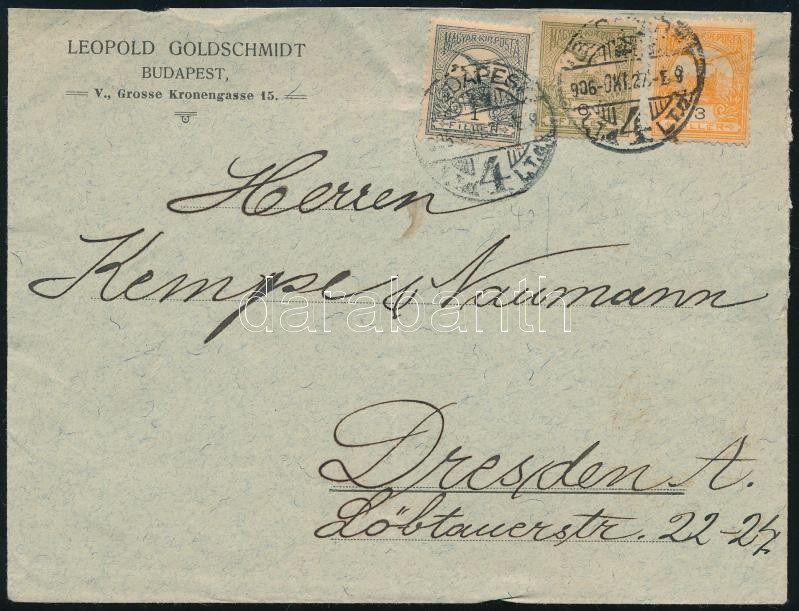 LEOPOLD GOLDSCHMIDT
BUDAPEST,
V., Grosse Kronengasse 15.
MAGYAR KIR. POSTA
1
FILLÉR
MAGYAR KIR. POSTA
6
MAGYAR KIR. POSTA
3
FILLÉR
BUDAPEST
4
906 OKT. 27
4
Herren
Kempe & Naumann
darabanth
Dresden A.
Löbtauerstr. 22-24